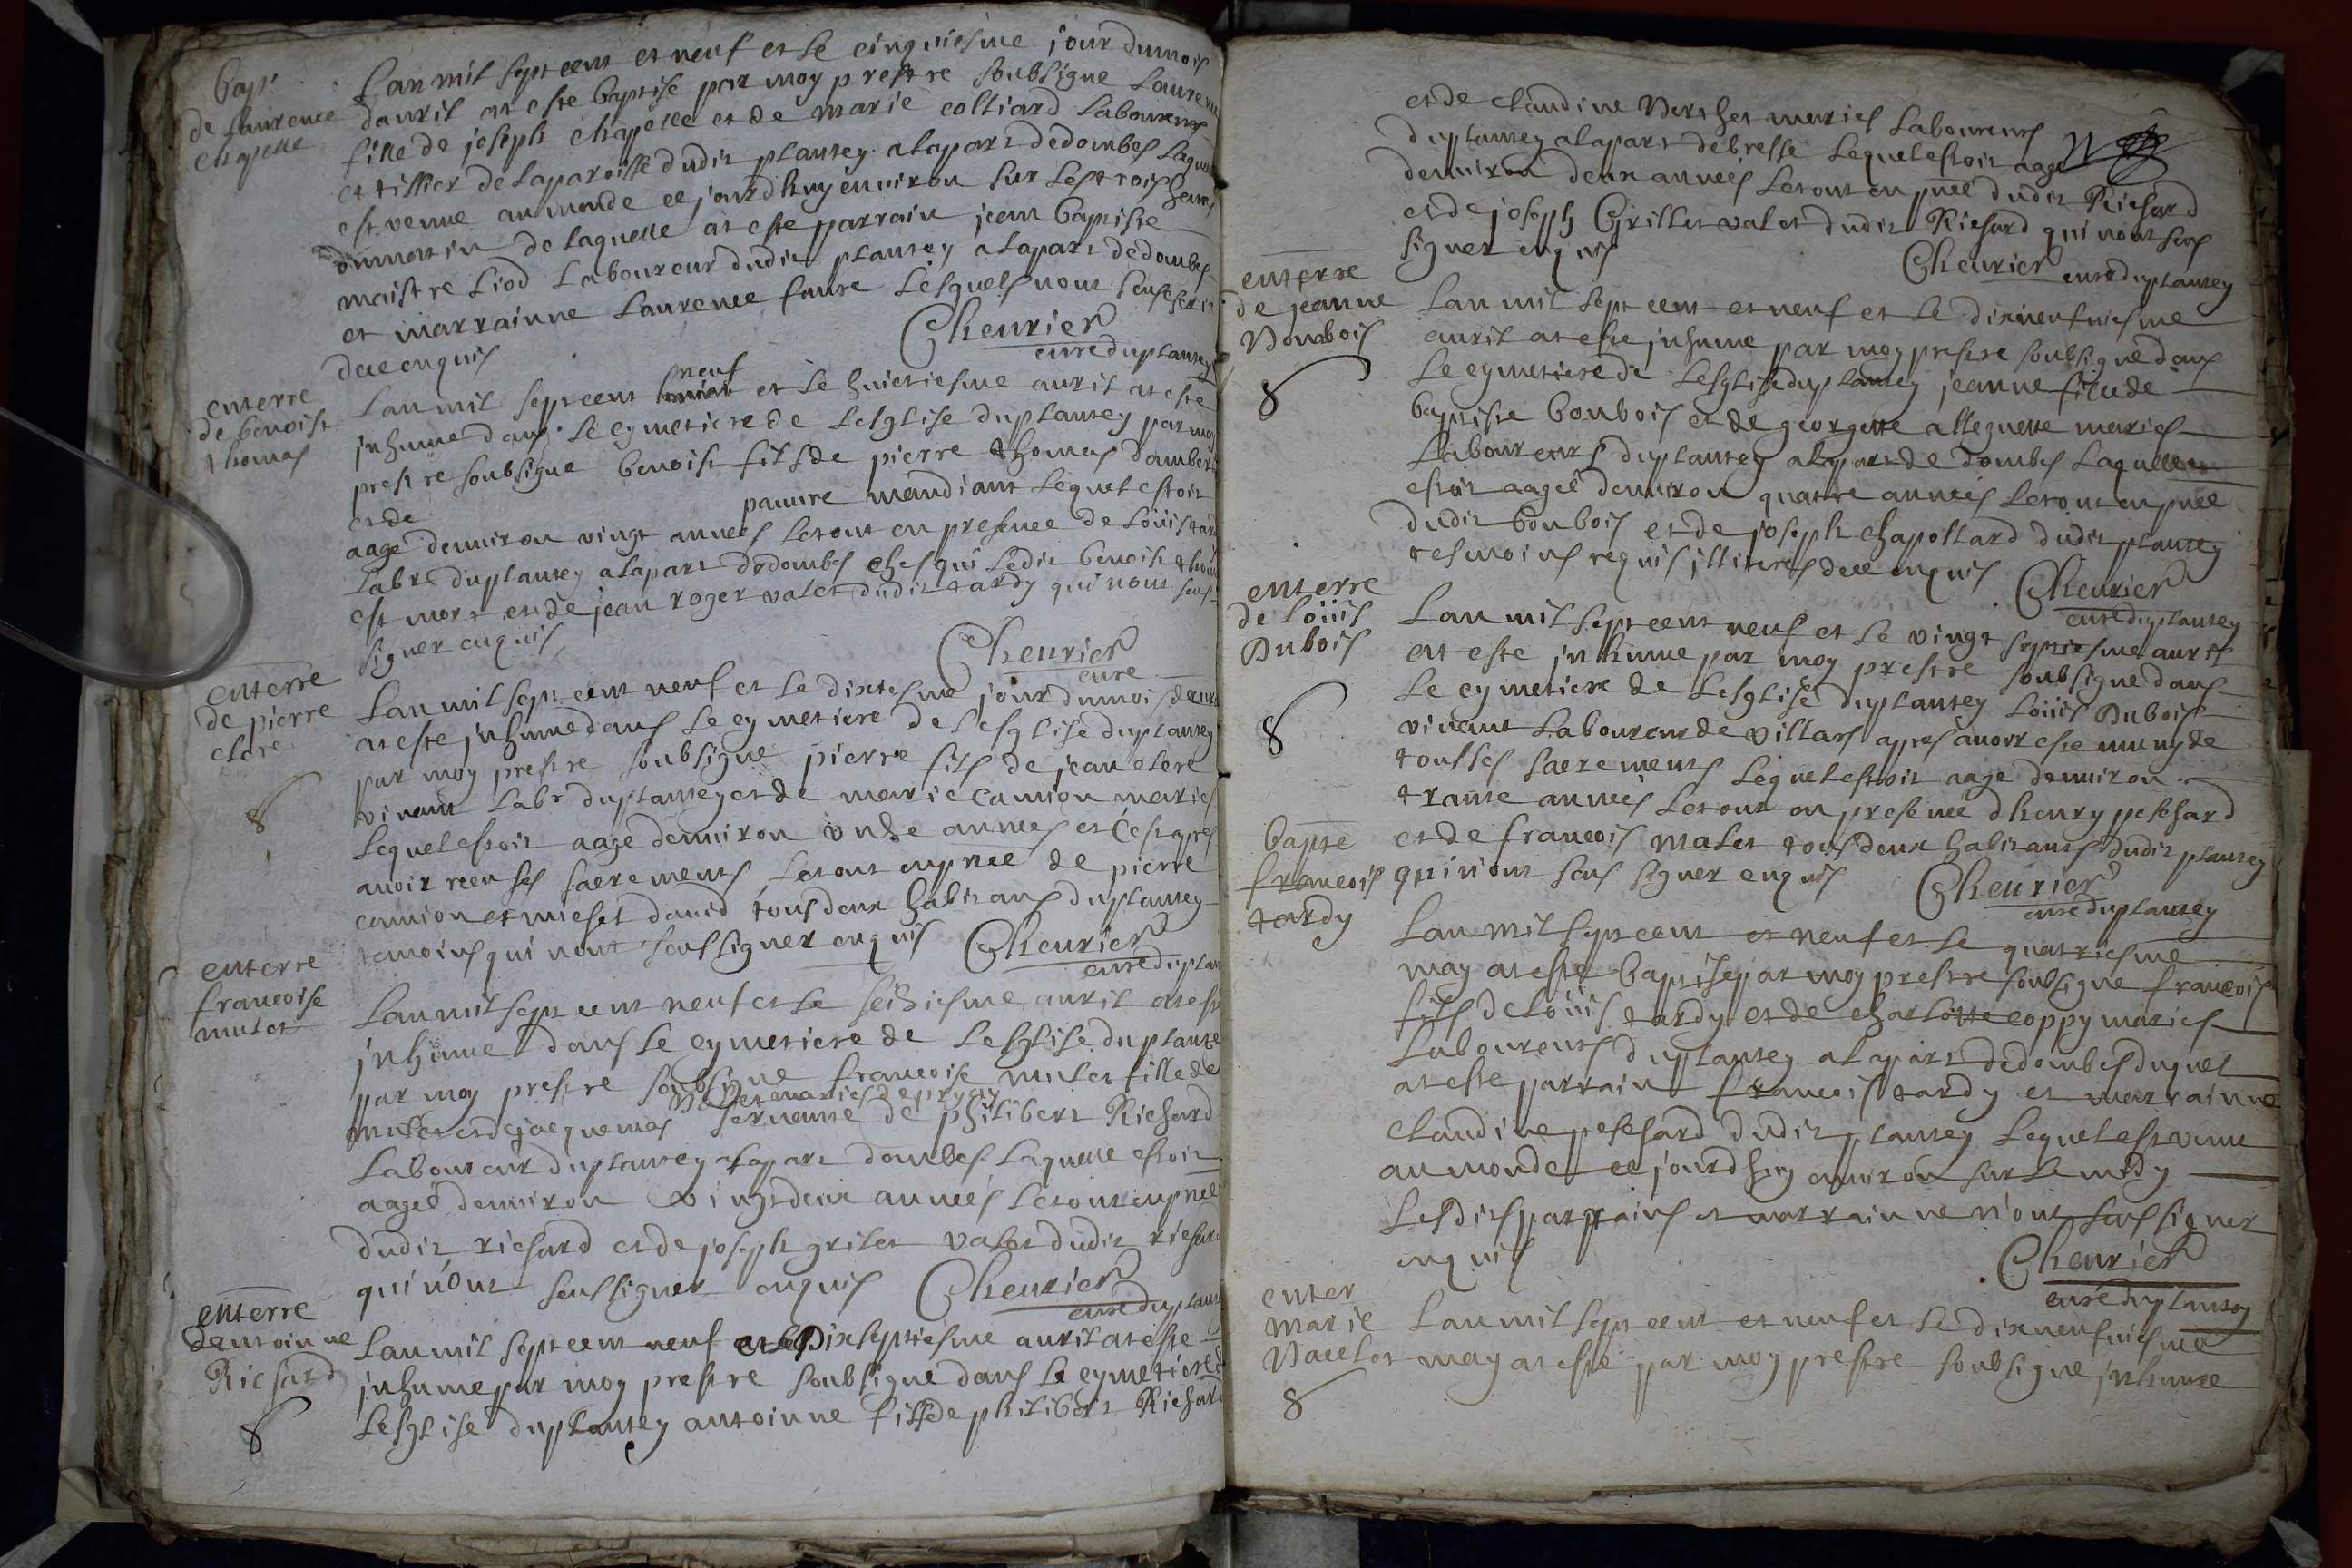 bapt
de laurence
chapelle
Lan mil sept cent et neuf et le cinquiesme jour dumois
dauril at este baptise par moy prestre soubsigne laurence
fille de joseph chapelle et de marie colliard laboureurs
et tissier de la paroisse dudit plantey alapart dedombes laquelle
est venue aumonde cejourdhuy enuiron sur lestrois heures
dumatin de laquelle at este parrain jean baptiste
maistre Liod laboureur dudit plantey alapart dedombes
et marrainne laurence faure lesquels nont seu escrire
dece enquis
Cheurier
cure duplantey
enterre
de benoist
thomas
Lan mil sept cent neuf et le huictiesme auril at este
jnhume dans le cymetiere de leglise duplantey par moy
prestre soubsigne benoist fils de pierre thomas dambert
et de pauure mandiant lequel estoit
aage denuiron vingt annees letout en presence de loüis tardy
labr duplantey alapart dedombes ches qui ledit benoist thomas
est mort et de jean roger valet dudit tardy qui nont seus
signer enquis
Cheurier
cure
enterre
de pierre
clere
8
Lan mil sept cent neuf et le dixiesme jour dumois dauril
at este jnhume dans le cymetiere de lesglise duplantey
par moy prestre soubsigne pierre fils de jean clere
viuant labr duplantey et de marie camion maries
lequel estoit aage denuiron unze annees et cest apres
auoir receu ses sacrements letout enpnce de pierre
camion et michel dauid tous deux habitans duplantey
temoins qui nont seus signer enquis Cheurier
cure duplantey
enterre
francoise
mulet
Lan mil sept cent neuf et le seiziesme auril at este
jnhume dans le cymetiere de lesglise duplantey
par moy prestre soubsigne francoise mulet fille de
maries de
mulet et de jacquemas seruante de philibert Richard
laboureur duplantey alapart dombes laquelle estoit
aageé denuiron vingtdeux années letout enpnce
dudit richard et de joseph grilet valet dudit richard
qui nont seus signer enquis Cheurier
cure duplantey
enterre
dentoinne
Richard
8
Lan mil sept cent neuf et le Dixseptiesme auril at este
jnhume par moy prestre soubsigne dans le cymetiere de
lesglise duplantey antoinne fils de philibert Richard
et de claudine Verchet maries laboureurs
duplantey alapart debresse lequel estoit aage
denuiron deux années letout en pnce dudit Richard
et de joseph Grillet valet dudit Richard qui nont seus
signer enquis
Cheurier cure duplantey
enterre
de jeanne
Bonbois
8
Lan mil sept cent et neuf et le dixneufuiesme
auril at este jnhume par moy prestre soubsigne dans
le cymetiere de lesglise duplantey jeanne fille de
baptiste bonbois et de georgette alleguette maries
laboureurs duplantey alapart de dombes laquelle
estoit aageé denuiron quattre années letout enpnce
dudit bonbois et de joseph chapollard dudit plantey
tesmoins requis jlliteres dece enquis
Cheurier
cure duplantey
enterre
de loüis
Dubois
8
Lan mil sept cent neuf et le vingt septiesme auril
at este jnhume par moy prestre soubsigne dans
le cymetiere de lesglise duplantey loüis Dubois
viuant laboureur de villars apres auoir este muny de
tous ses sacrements lequel estoit aage denuiron
trante années letout en presence dhenry peschard
et de francois malet tous deux habitants dudit plantey
qui nont seus signer enquis Cheurier
cure duplantey
bapte
francois
tardy
Lan mil sept cent et neuf et le quatriesme
may at este baptise par moy prestre soubsigne francois
fils de loüis tardy et de charlotte coppy maries
laboureurs duplantey alapart dedombes duquel
at este parrain francois tardy et marrainne
claudine peschard dudit plantey lequel est venu
au monde cejourdhuy enuiron sur le midy
lesdits parrains et marrainne nont seus signer
enquis
Cheurier
curé duplantey
enter
marie
Vacelot
8
Lan mil sept cent et neuf et le dixneufuiesme
may at este par moy prestre soubsigne jnhumee